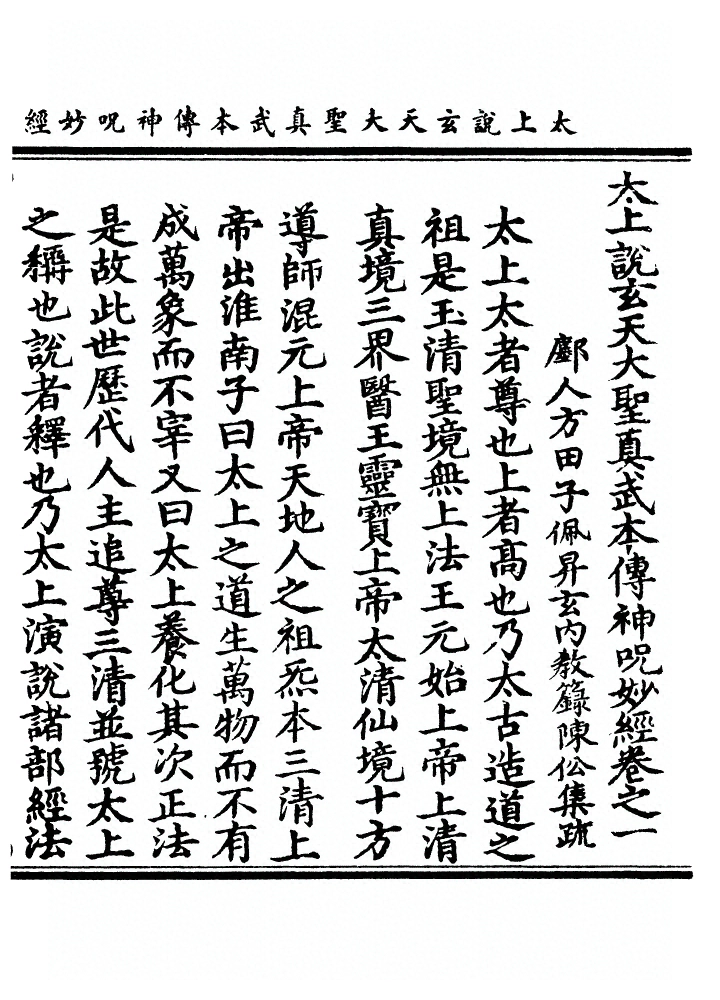 太上說玄天大聖真武本傳神呪妙經
太上說玄天大聖真武本傳神呪妙經卷之一
酆人方田子佩昇玄內教籙陳伀集疏
太上太者尊也上者高也乃太古造道之
祖是玉清聖境無上法王元始上帝上清
真境三界醫王靈寶上帝太清仙境十方
導師混元上帝天地人之祖炁本三清上
帝出淮南子曰太上之道生萬物而不有
成萬象而不宰又曰太上養化其次正法
是故此世歷代人主追尊三清並號太上
之稱也說者釋也乃太上演說諸部經法